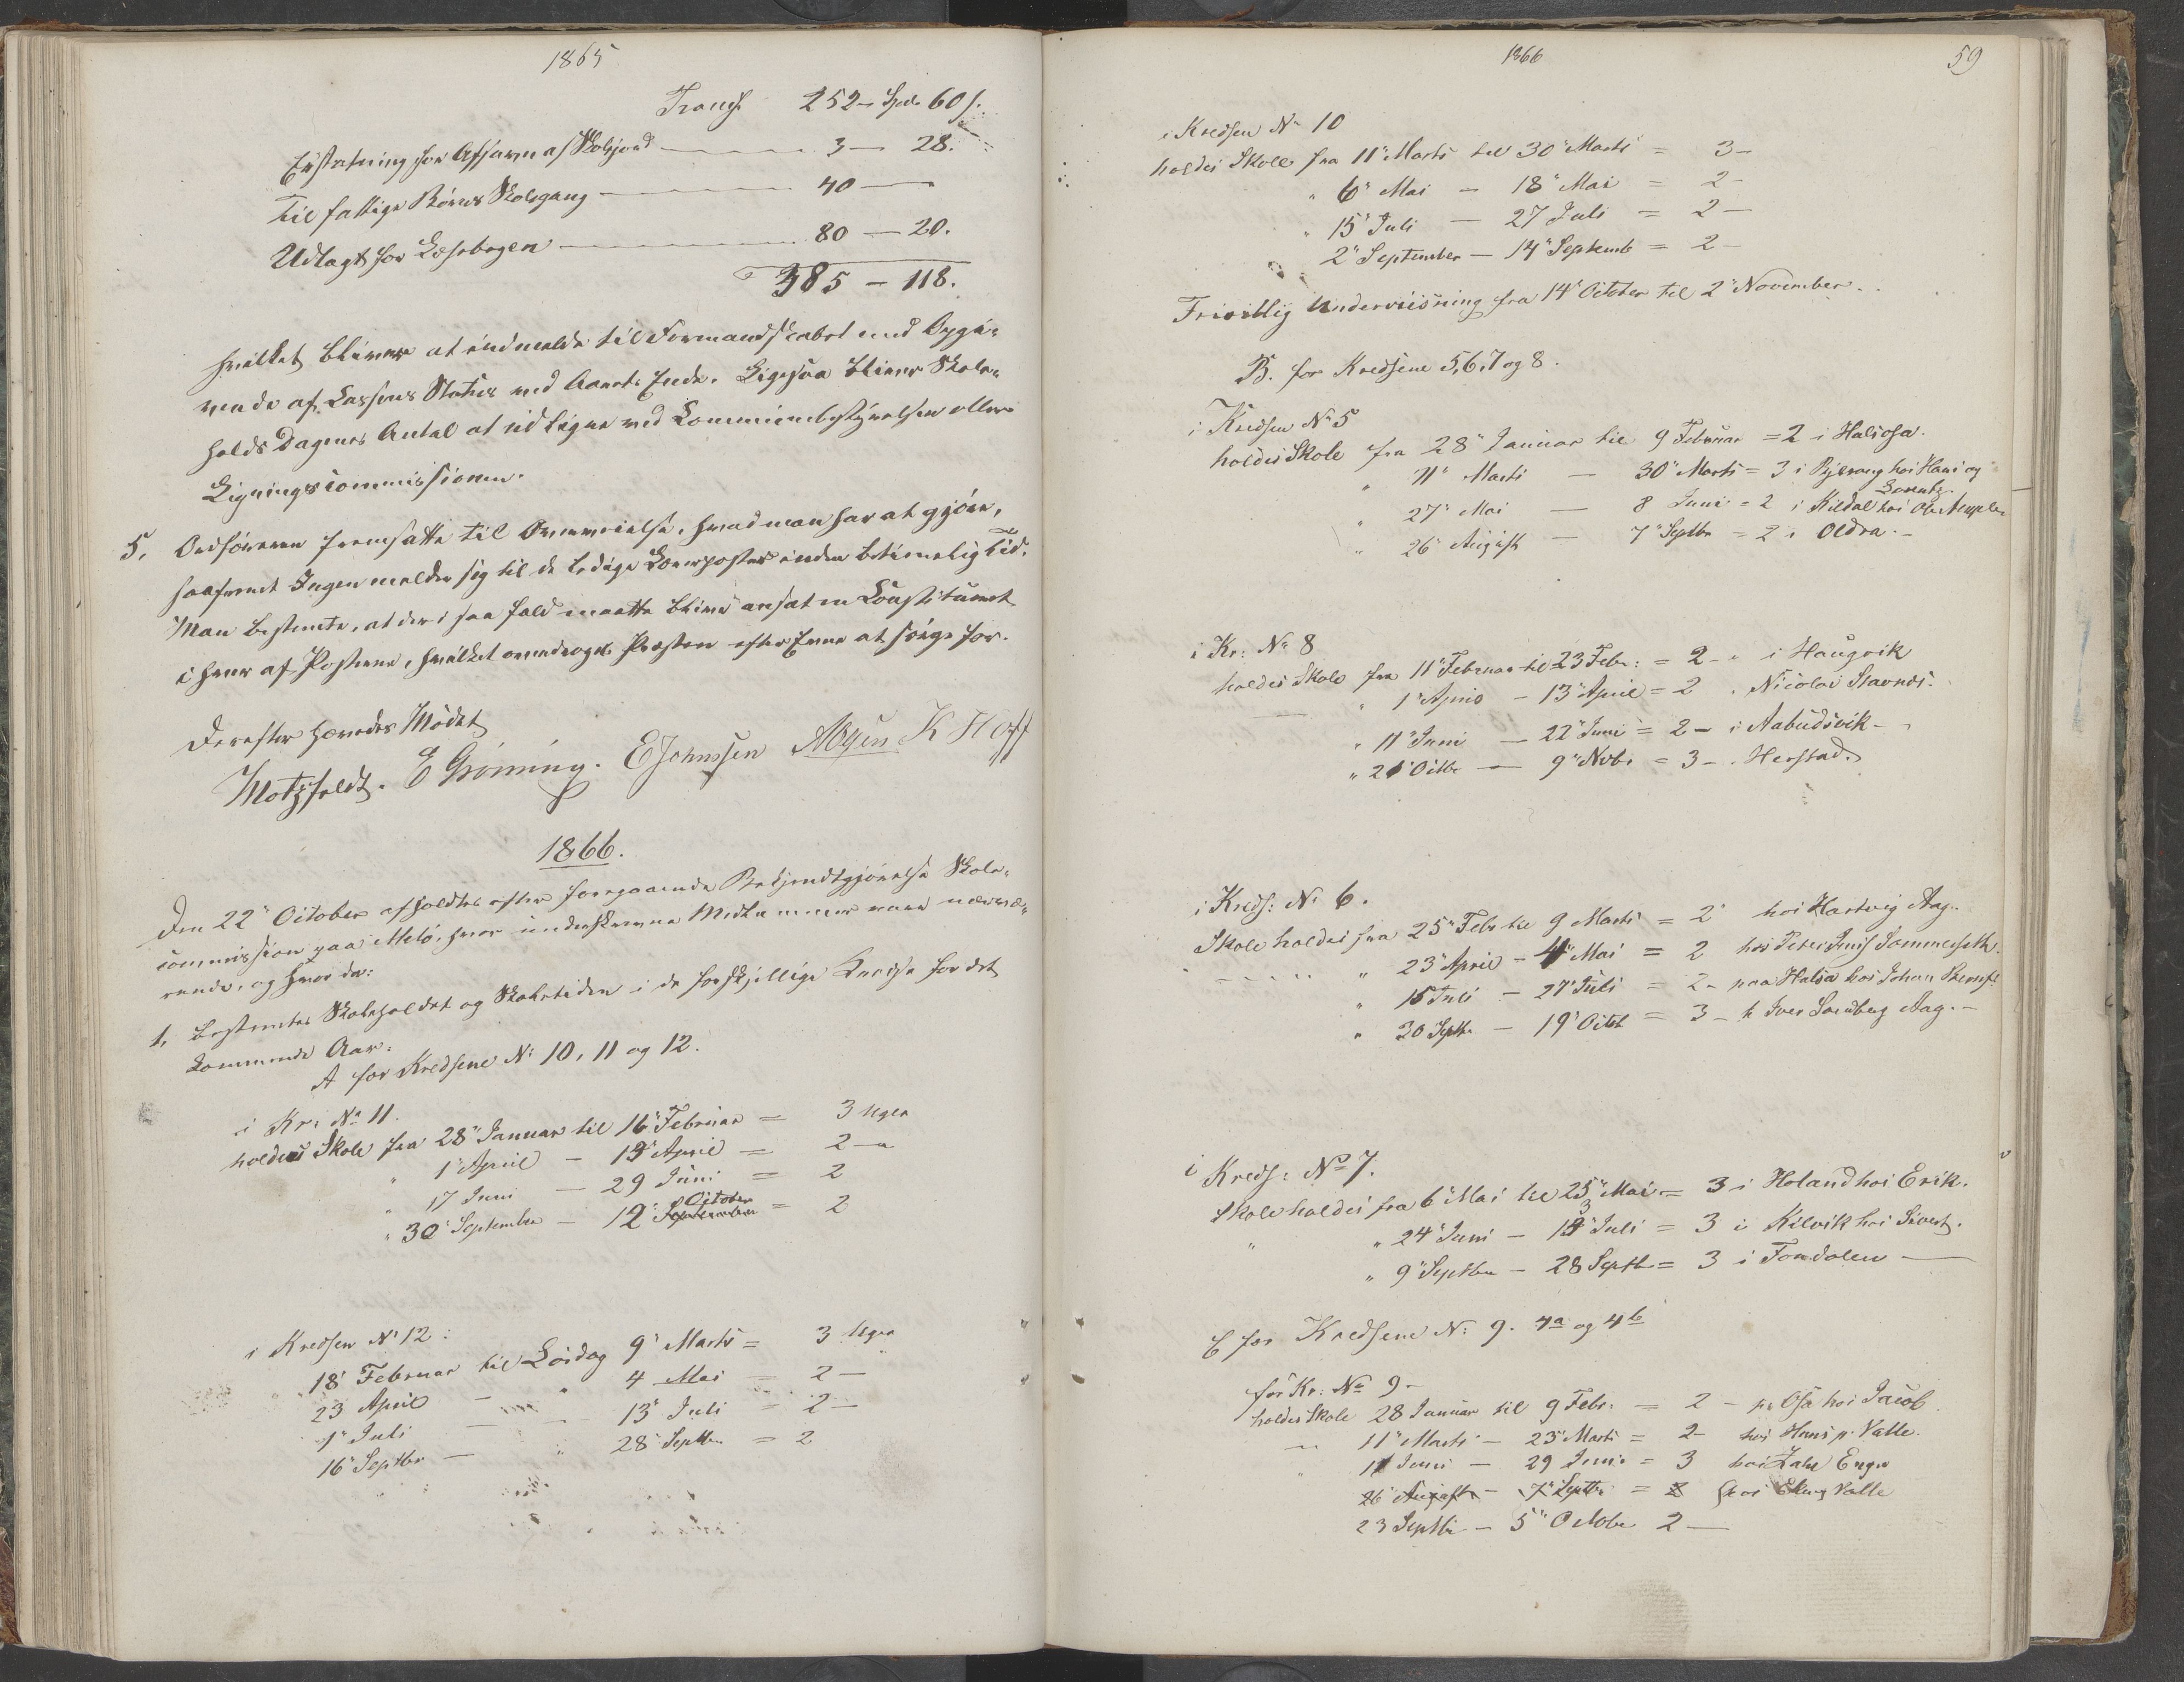 1865
Transp. 252 – Spd. 60 s.
Erstatning for Afsavn af Skolejord — 3 — 28.
Til fattige Börns Skolegang — 40 —
Udlagt for Læsebogen — 80 — 20.
385 – 118.
hvilket bliver at indmelde til Formandskabet med Opgi-
vende af Cassens Status ved Aarets Ende. Ligesaa bliver Skole-
holds Dagenes Antal at udligne ved Communebestyrelsen eller
Ligningscommissionen.
5, Ordföreren fremsatte til Overveielse, hvad man har at gjöre,
saafremt Ingen melder sig til de ledige Lærerposter inden betimelig Tid.
Man bestemte, at der i saa Fald maatte blive ansat en Constitueret
i hver af Posterne, hvilket overdroges Præsten efter Evne at sörge for.
Derefter hævedes Mödet
Motzfeldt. E Gröning. E Johnsen K Hoff
1866.
Den 22" October afholdtes efter foregaaende Bekjendtgjörelse Skole-
commission paa Melö, hvor underskrevne Medlemmer vare nærvæ-
rende, og hvor der:
1, bestemtes Skoleholdet og Skoletiden i de forskjellige Kredse for det
kommende Aar:
A for Kredsene N: 10, 11 og 12.
i Kr: No 11.
holdes Skole fra 28" Januar til 16" Februar = 3 Uger
" 1" April – 13" April = 2 – "
" 17 Juni – 29 Juni = 2
" 30" September – 12" September October = 2
i Kredsen No 12:
" 18" Februar til Lördag 9" Marts = 3 Uger
23 April – " 4 Mai = 2 –
1" Juli – 13" Juli = 2 –
16" Septbr – " 28" Septbr = 2
1866
59
i Kredsen No 10
holdes Skole fra 11" Marts til 30" Marts = 3 –
" 6" Mai – 18" Mai = 2 –
" 15" Juli – 27 Juli = 2 –
2" September – 14" Septemb = 2 –
Frivillig Underviisning fra 14" October til 2" November.
B. for Kredsene 5, 6, 7 og 8.
i Kredsen No 5
holdes Skole fra 28" Januar til 9 Februar = 2 i Halsosa.
" 11" Marts – 30" Marts = 3 i hos Hans og
Lorentz.
" 27" Mai – 8 Juni = 2 i Kildal hos Ole
" 26" August – 7" Septbr = 2 i Oldra. –
i Kr: No 8
holdes Skole fra 11" Februar til 23 Febr: = 2 – " i Haugvik
" 1" April – 13" April = 2 " Nicolai Stavnes.
" 11" Juni – 22" Juni = 2 – i Aabudsvik –
" 21" Octbr – 9" Nvbr = 3 – " Herstad.
i Kreds: No 6.
Skole holdes fra 25" Febr til 9 Marts = 2" hos Hartvig Aag.
" 23" April – 4" Mai = 2 hos Peter Jenss Sommerseth.
" 15" Juli – 27" Juli = 2 – paa Halsa hos Johan
" 30 Septbr – 19" Octob = 3 – h Iver Aag. –
i Kreds: No 7.
Skole holdes fra 6" Mai til 25" Mai = 3 i Holand hos Erik.
" " 24" Juni – 13" Juli = 3 i Kilvik hos Sivert.
" 9" Septbr – 28 Septb = 3 i Fondalen —
C for Kredsene N: 9. 4a og 4b
för Kr: No 9 –
holdes Skole 28 Januar til 9 Febr: = 2 – pr Osa hos Jacob.
" 11" Marts – 23" Marts = 2 – hos Hans p. Valle.
" 11 Juni – 29 Juni = 3 hos Engen
26" August – 7" Septbr = 2 hos Valle
23 Septbr – 5" Octobr 2 —